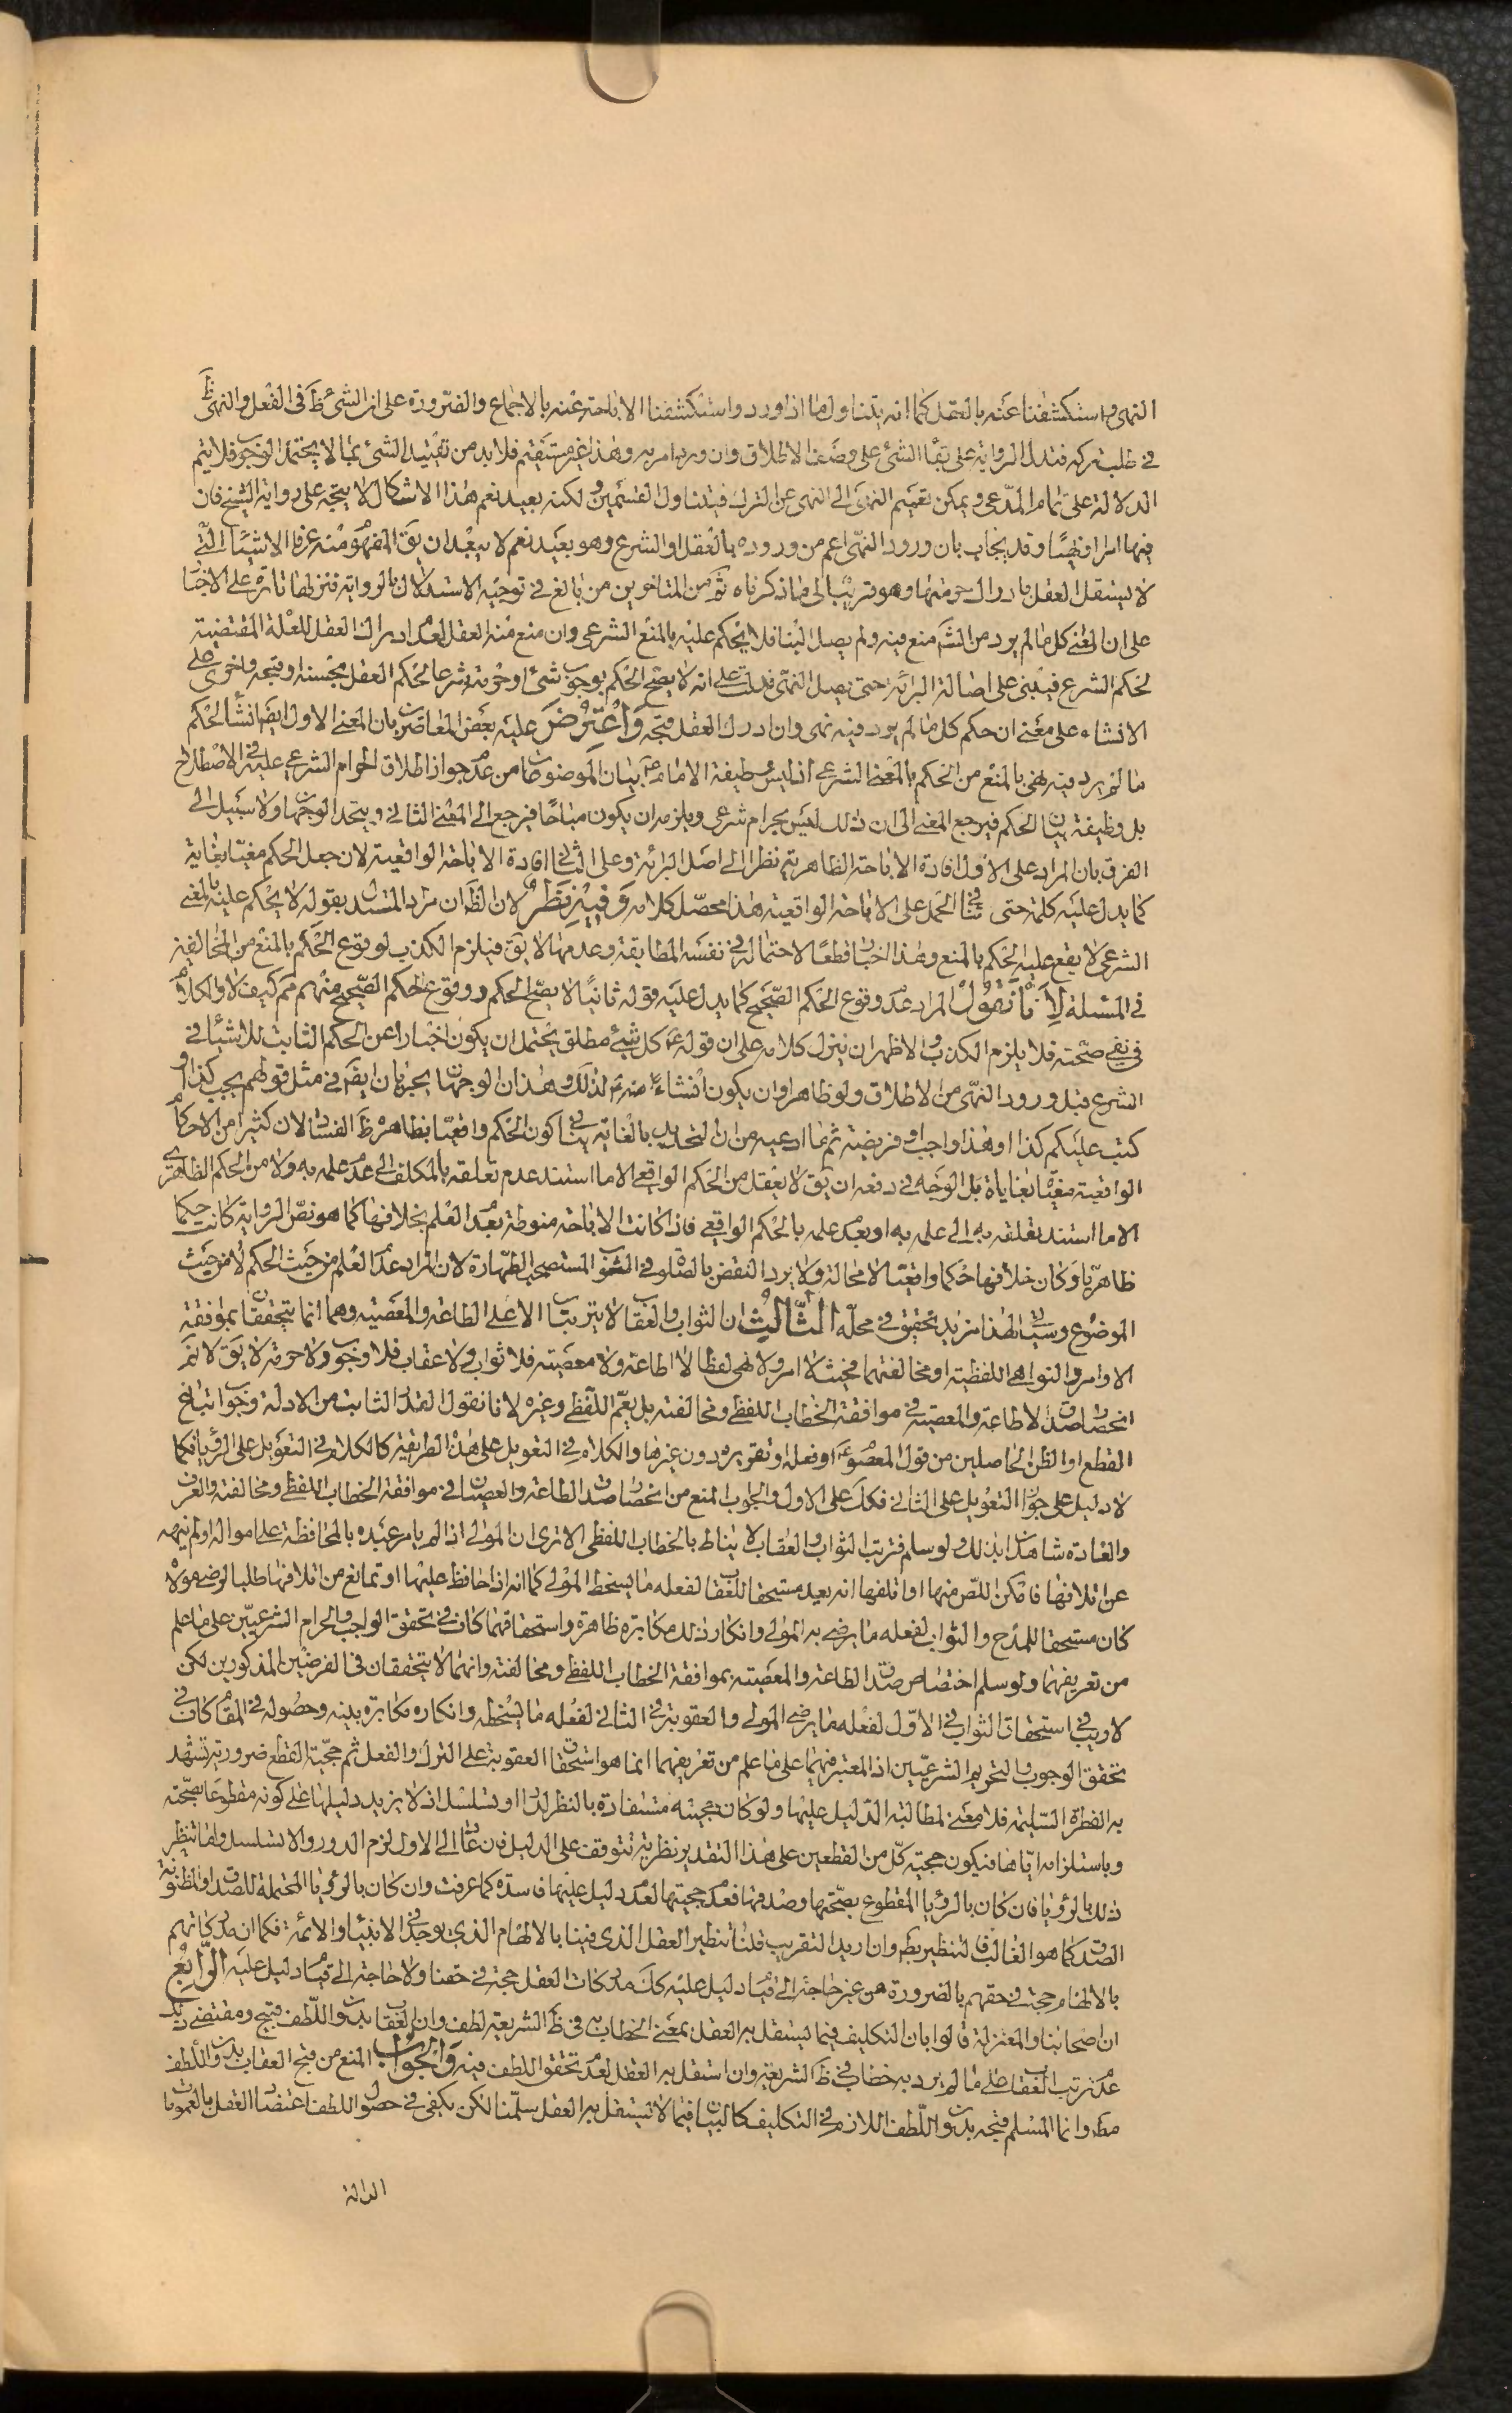 النهى واستكشفنا عنه بالعقل كما انه يتناول ما اذا ورد واستكشفنا الاباحة عنه بالاجماع والضرورة على ان الشئ ظَ فى الفعل والنهى ظَ
فى طلب تركه فتدل الرواية على بقاء الشئ على وصف الاطلاق وان ورد امر به وهذا غير مستقيم فلا بد من تقييد الشئ بما لا يحتمل الوجوب فلا يتم
الدلالة على تمام المدّعى ويمكن تعميم النهى الى النهى عن الترك فيتناول القسمين ولكنه بعيد نعم هذا الاشكال لا يتجه على رواية الشيخ فان
فيها امرا ونهيًا وقد يجاب بان ورود النهى اعم من وروده بالعقل او الشرع وهو بعيد نعم لا يبعد ان يقَ المفهوم منه عرفا الاشياء الّتى
لا يستقل العقل بادراك حرمتها وهو قريب الى ما ذكرناه ثمّ من المتاخرين من بالغ فى توجيه الاستدلال بالرواية فنزلها تارة على الاخبار
على ان المعنى كل ما لم يرد من الشرع منع فيه ولم يصل الينا فلا يحكم عليه بالمنع الشرعى وان منع منه العقل لعدم ادراك العقل للعلة المقتضية
لحكم الشرع فيبنى على اصالة البرائة حتى يصل النهى فدلت على انه لا يصح الحكم بوجوب شئ او حرمته شرعا لحكم العقل بحسنه او قبحه واخرى على
الانشاء على معنى ان حكم كل ما لم يرد فيه نهى وان ادرك العقل قبحه وَاعْتَرَضَ عليه بعض المعاصرين بان المعنى الاول ايضَ انشاء لحكم
ما لم يرد فيه نهى بالمنع من الحكم بالمنع الشرعى اذ ليس وظيفة الامام عَ بيان الموضوعات من عدم جواز اطلاق الحرام الشرعى عليه فى الاصطلاح
بل وظيفة بيان الحكم فيرجع المعنى الى ان ذلك ليس بحرام شرعى ويلزمه ان يكون مباحًا فيرجع الى المعنى الثانى ويتحد الوجهان ولا سبيل الى
الفرق بان المراد على الاول افادة الاباحة الظاهرية نظرا الى اصل البرائة وعلى الثانى افادة الاباحة الواقعية لان جعل الحكم مغيّا بغاية
كما يدل عليه كلمة حتى ينافى الحمل على الاباحة الواقعية هذا محصّل كلامه وَفيه نَظَرٌ لان الظَ ان مراد المستدل بقوله لا يحكم عليه بالمنع
الشرعى لا يقع عليه الحكم بالمنع وهذا اخبار قطعًا لاحتماله فى نفسه المطابقة وعدمها لا يقَ فيلزم الكذب لوقوع الحكم بالمنع من المخالفين
فى المسئلة لِأَنَّا نَقُولُ المراد عدم وقوع الحكم الصّحيح كما يدل عليه قوله ثانيًا لا يصحّ الحكم ووقوع الحكم الصّحيح منهم مم كيف لا والكلام
فى نفى صحّته فلا يلزم الكذب والاظهر ان ينزل كلامه على ان قوله عَ كل شئ مطلق يحتمل ان يكون اخبارا عن الحكم الثابت للاشياء فى
الشرع قبل ورود النهى من الاطلاق ولو ظاهرا وان يكون انشاءً منه عَ لذلك وهذان الوجهان يجريان ايضَ فى مثل قولهم يجب كذا او
كتب عليكم كذا او هذا واجب او فريضة ثم ما ادعيه من ان التحديد بالغاية ينافى كون الحكم واقعيّا بظاهره ظَ الفساد لان كثيرا من الاحكام
الواقعية مغيّاة بغايات بل الوجه فى دفعه ان يقَ لا يعقل من الحكم الواقعى الا ما استند عدم تعلقه بالمكلف الى عدم علمه به ولا من الحكم الظاهرى
الا ما استند تعلقه به الى علمه به او بعدم علمه بالحكم الواقعى فاذا كانت الاباحة منوطة بعدم العلم بخلافها كما هو نصّ الرواية كانت حكما
ظاهريّا وكان خلافها حكما واقعيّا لا محالة ولا يرد النقض بالصّلوة فى الثوب المستصحب الطّهارة لان المراد عدم العلم من حيث الحكم لا من حيث
الموضوع وسياتى لهذا مزيد تحقيق فى محلّه الثّالِثُ ان الثواب والعقاب لا يترتبان الا على الطاعة والمعصية وهما انما يتحققان بموافقة
الاوامر والنواهى اللفظية او مخالفتهما فحيث لا امر ولا نهى لفظا لا اطاعة ولا معصية فلا ثواب ولا عقاب فلا وجوب ولا حرمة لا يقَ لا نم
انحصار صدق الاطاعة والمعصية فى موافقة الخطاب اللفظى ومخالفته بل يعمّ اللّفظى وغيره لانا نقول القدر الثابت من الادلة وجوب اتباع
القطع او الظن الحاصلين من قول المعصوم عَ او فعله او تقريره دون غيرها والكلام فى التعويل على هذه الطريقة كالكلام فى التعويل على الرؤيا فكما
لا دليل على جواز التعويل على الثانى فكك على الاول والجواب المنع من انحصار صدق الطاعة والعصيان فى موافقة الخطاب اللفظى ومخالفته والعرف
والعادة شاهدان بذلك ولو سلم فترتب الثواب والعقاب لا يناط بالخطاب اللفظى الا ترى ان المولى اذا لم يامر عبده بالمحافظة على امواله او لم ينهه
عن اتلافها فامكن اللّص منها او اتلفها انه يعد مستحقا للعقاب لفعله ما يسخط المولى كما انه اذا حافظ عليها او تمانع من اتلافها طلبا لرضى مولاه
كان مستحقا للمدح والثواب لفعله ما يرضى به المولى وانكار ذلك مكابرة ظاهرة واستحقاقهما كاف فى تحقق الواجب والحرام الشرعيّين على ما علم
من تعريفهما ولو سلم اختصاص صدق الطاعة والمعصية بموافقة الخطاب اللفظى ومخالفته وانهما لا يتحققان فى الفرضين المذكورين لكن
لا ريب فى استحقاق الثواب فى الاوّل لفعله ما يرضى المولى والعقوبة فى الثانى لفعله ما يسخطه وانكاره مكابرة بينه وحصوله فى المقام كاف فى
تحقق الوجوب والتحريم الشرعيّين اذ المعتبر فيهما على ما علم من تعريفهما انما هو استحقاق العقوبة على الترك والفعل ثم حجّية القطع ضرورية تشهد
به الفطرة السّليمة فلا معنى لمطالبة الدّليل عليها ولو كان حجيته مستفادة بالنظر لدار او تسلسل اذ لا يزيد دليلها على كونه مقطوعًا بصحّته
وباستلزامه ايّاها فيكون حجية كلّ من القطعين على هذا التقدير نظرية تتوقف على الدليل فان عاد الى الاول لزم الدور والا تسلسل واما تنظير
ذلك بالرؤيا فان كان بالرؤيا المقطوع بصحّتها وصدقها فعدم حجيتها لعدم دليل عليها فاسدة كما عرفت وان كان بالرؤيا المحتملة للصدق او المظنونة
الصدق كما هو الغالب فالتنظير بط وان اريد التقريب قلنا تنظير العقل الذى فينا بالالهام الذى يوجد فى الانبياء والائمة فكما ان مدركاتهم
بالالهام حجة فى حقهم بالضرورة من غير حاجة الى قيام دليل عليه كك مدركات العقل حجة فى حقنا ولا حاجة الى قيام دليل عليه الرّابعُ
ان اصحابنا والمعتزلة قالوا بان التكليف فيما يستقل به العقل بمعنى الخطاب به فى ظَ الشريعة لطف وان العقاب بدون اللّطف قبيح ومقتضى ذلك
عدم ترتب العقاب على ما لم يرد به خطاب فى ظَ الشريعة وان استقل به العقل لعدم تحقق اللطف فيه وَالجَوابُ المنع من قبح العقاب بدون اللّطف
مطَ وانما المسلم قبحه بدون اللّطف اللازم فى التكليف كالبيان فيما لا يستقل به العقل سلّمنا لكن يكفى فى حصول اللطف اعتضاد العقل بالعمومات
الدالة